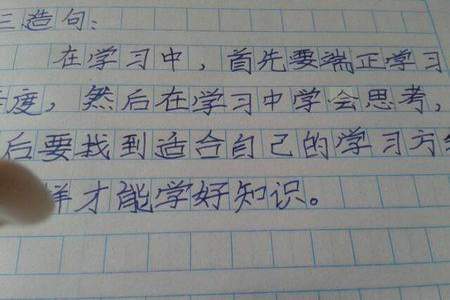 三造句：
在学习中，首先要端正学习
态度，然后在学习中学会思考，
后要找到适合自己的学习方
样才能学好知识。